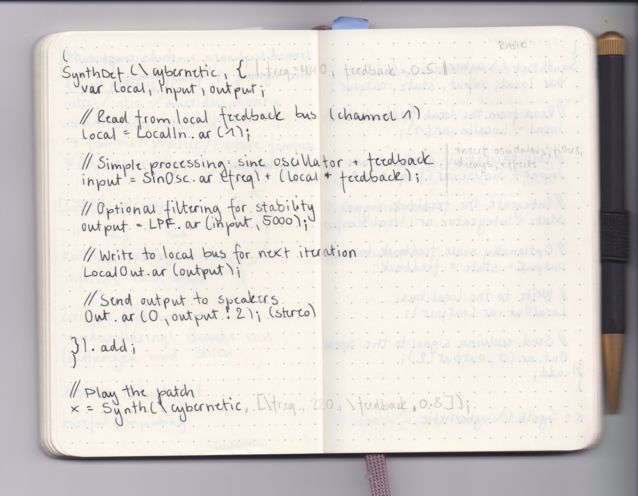 BASIC
(
SynthDef (\cybernetic, { | freq = 440, feedback = 0.5 |
var local, input, output;
// Read from local feedback bus (channel 1)
local = LocalIn.ar (1);
// Simple processing: sine oscillator + feedback
input = SinOsc.ar (freq) + (local * feedback);
insert oscillators, filters,
effects
// Optional filtering for stability
output = LPF.ar (input, 5000);
// Write to local bus for next iteration
LocalOut.ar (output);
// Send output to speakers
Out.ar (0, output ! 2); (stereo)
}).add;
)
// Play the patch
x = Synth(\cybernetic, [\freq, 220, \feedback, 0.8]);